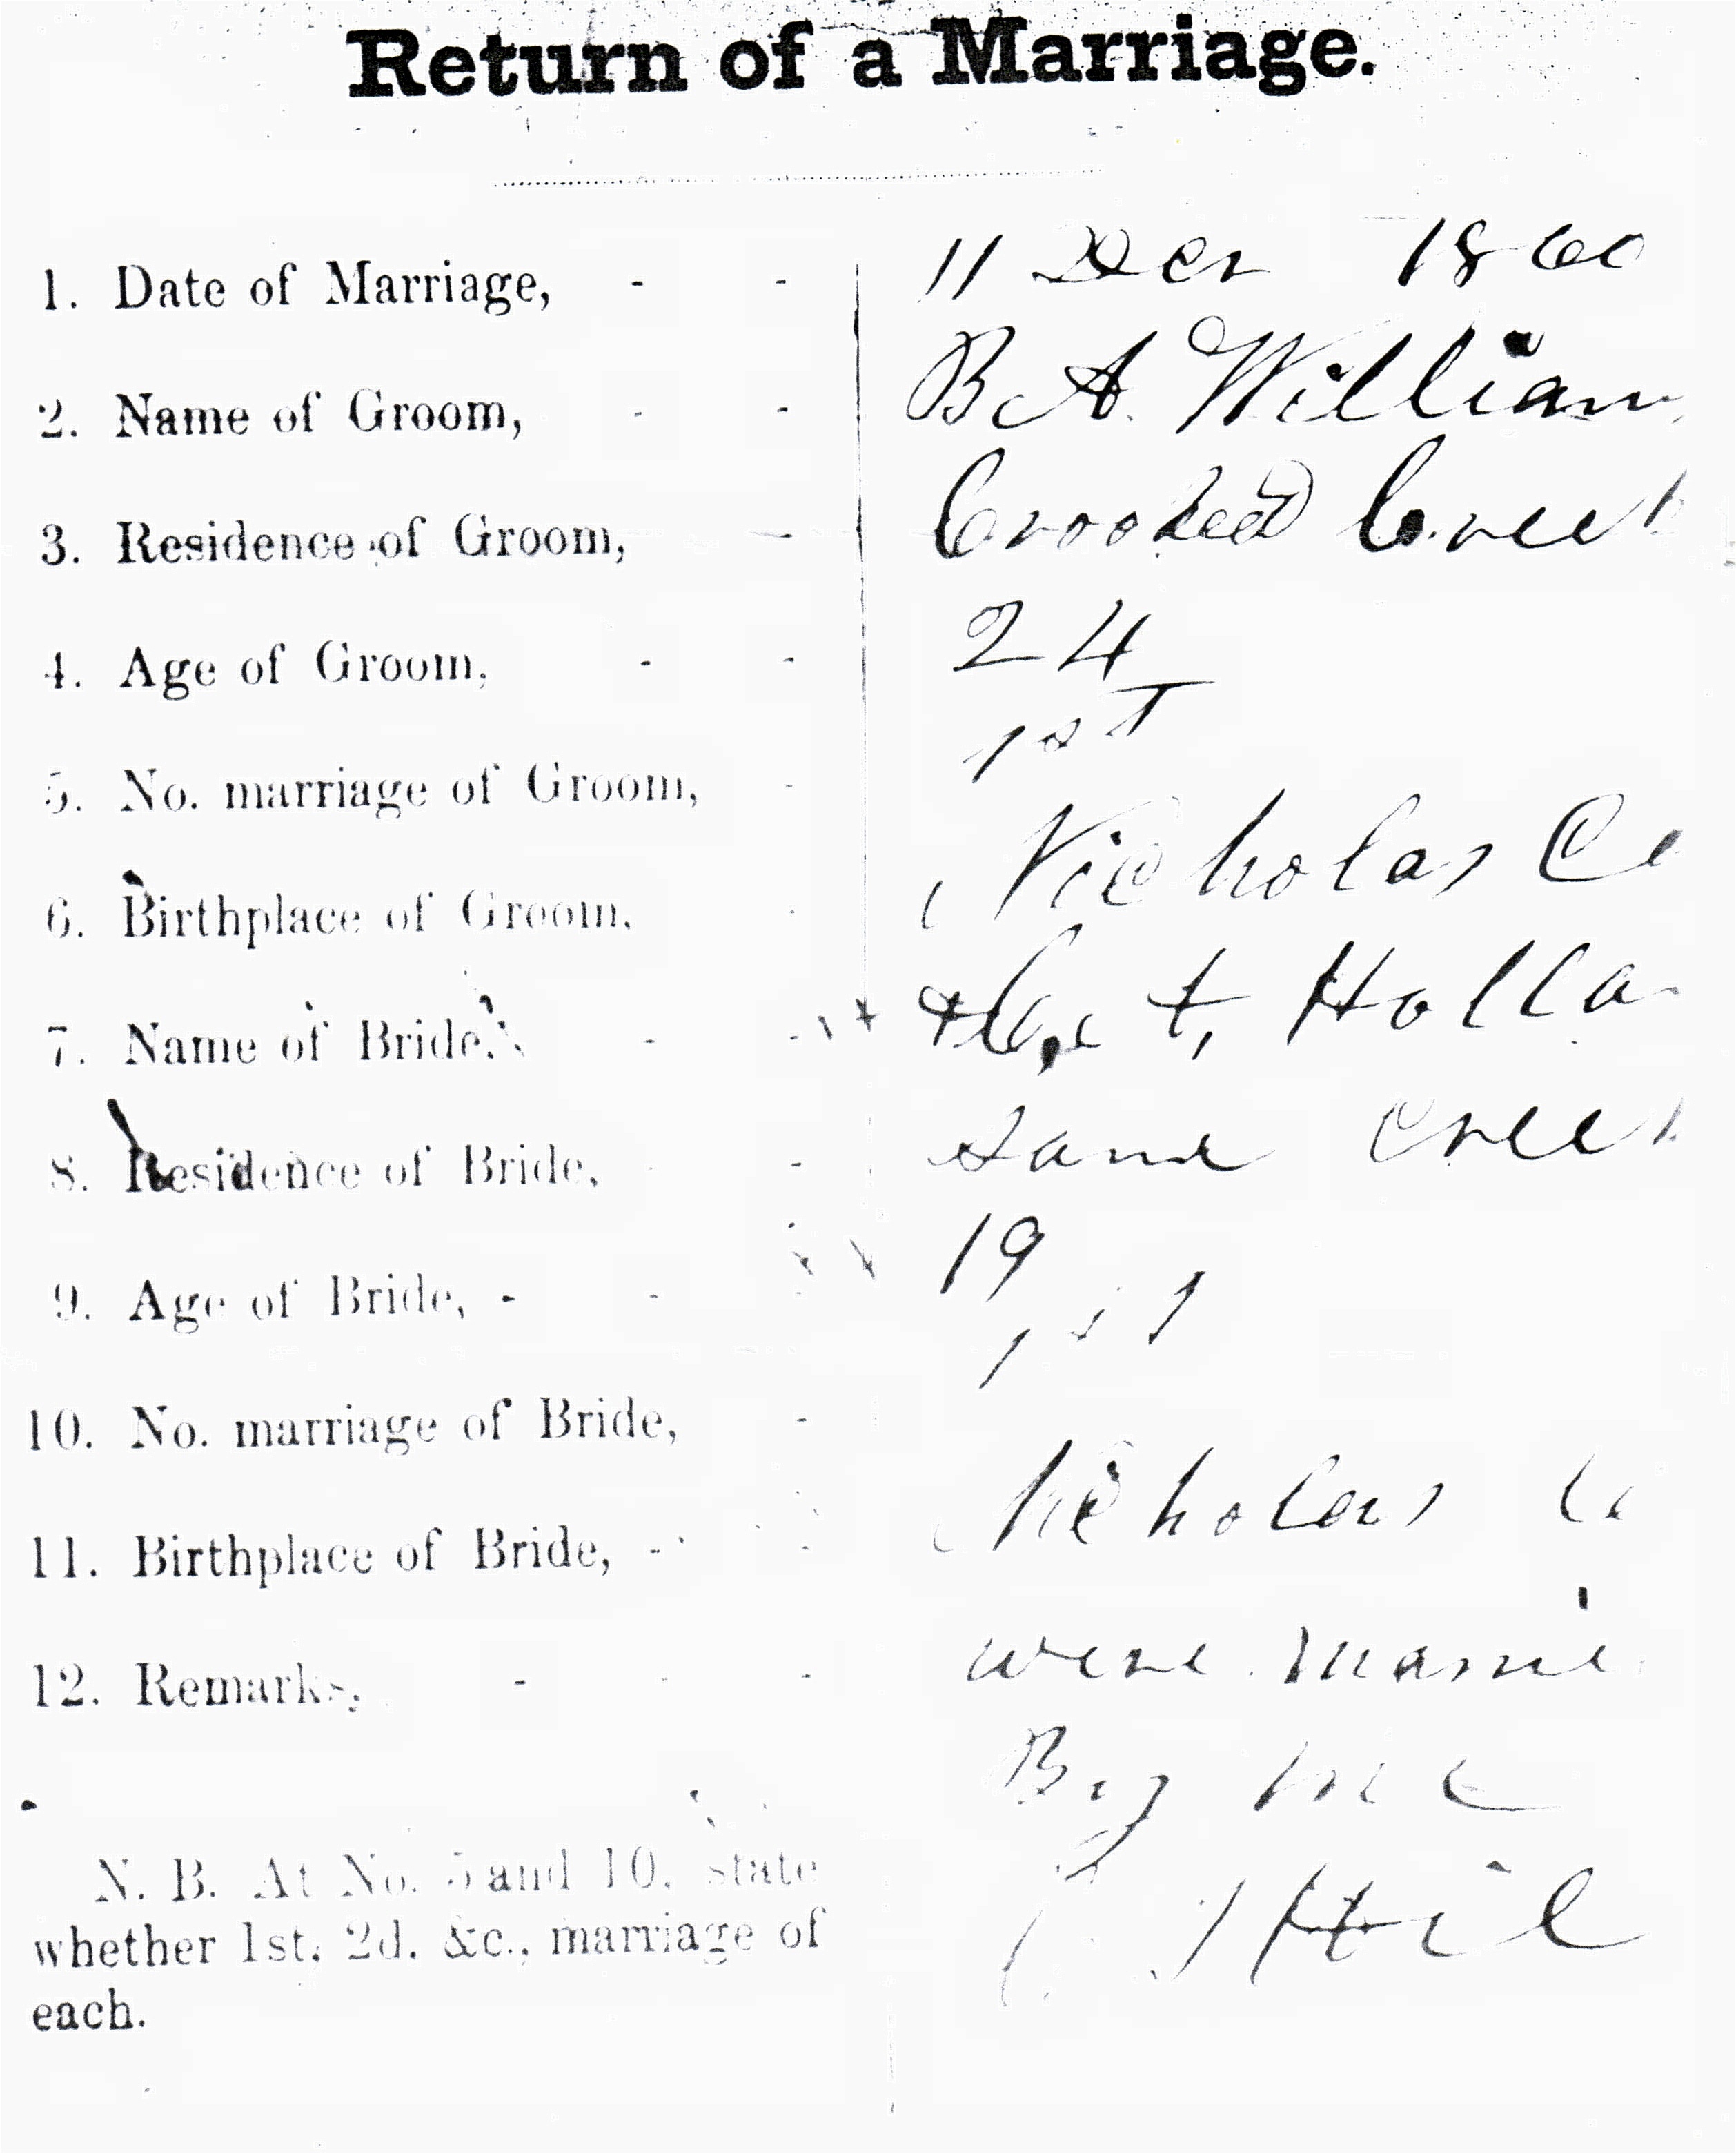 Return of a Marriage.
1. Date of Marriage, - - 11 Dec 1860
2. Name of Groom, - - B A. William
3. Residence of Groom, - Crooked Creek
4. Age of Groom, - - 24
5. No. marriage of Groom, - 1st
6. Birthplace of Groom, - Nicholas Co
7. Name of Bride, - - Holla
8. Residence of Bride, - Creek
9. Age of Bride, - - - 19
10. No. marriage of Bride, - 1st
11. Birthplace of Bride, - - Nicholas Co
12. Remarks, - - - were Marrie
By me
N. B. At No. 5 and 10, state
whether 1st, 2d, &c., marriage of
each.